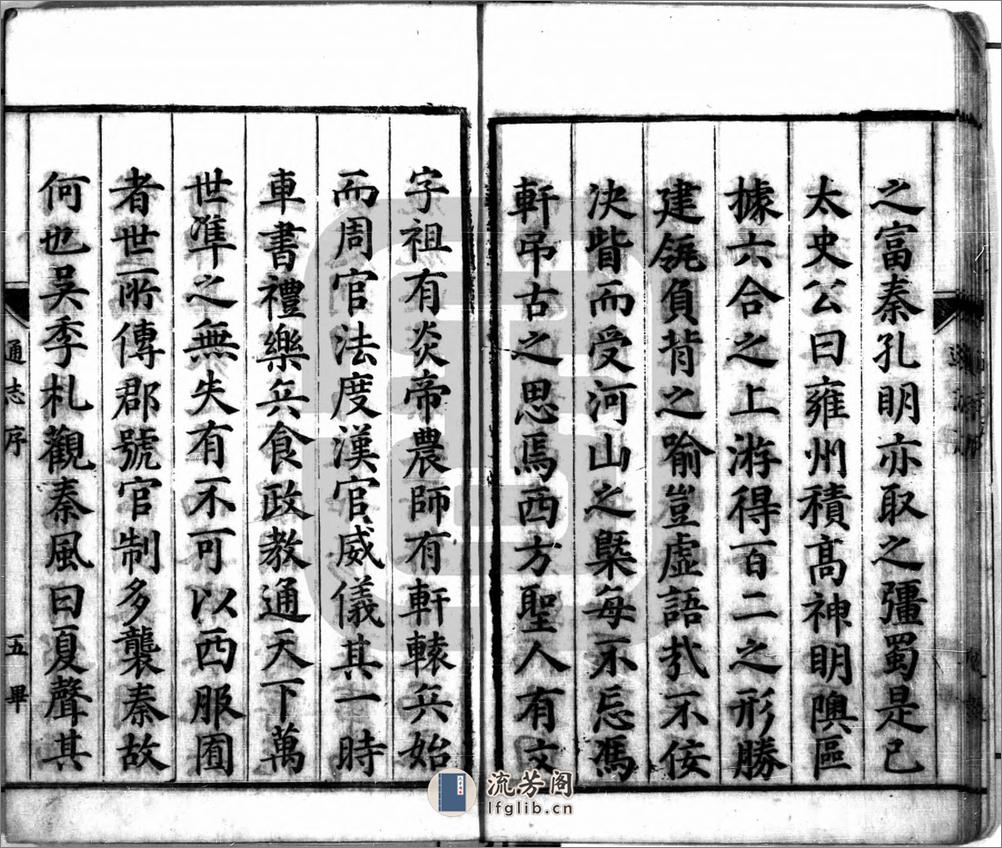 之富秦孔明亦取之彊蜀是已
太史公曰雍州積髙神明隩區
據六合之上游得百二之形勝
建瓴負背之喻豈虛語哉不佞
決眥而受河山之槩每不忘馮
軒吊古之思焉西方聖人有文
字祖有炎帝農師有軒轅兵始
而周官法度漢官威儀其一時
車書禮樂兵食政教通天下萬
世準之無失有不可以西服囿
者世所傳郡號官制多襲秦故
何也吳季札觀秦風曰夏聲其
通志序
五
畢
流芳阁
lfglib.cn